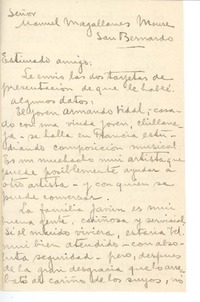 Señor
Manuel Magallanes Moure
San Bernardo
Estimado amigo:
Le envío las dos tarjetas de
presentación de que le hablé.
Algunos datos:
El joven Armando Vidal; casa-
do con una viuda joven, chillane-
ja - se halla en Francia estu-
diando composición musical.
Es un muchacho mui artista, que
puede posiblemente ayudar a
otro artista - y, con quien se
puede conversar.
La familia es mui
buena gente, cariñosa y servicial.
Si el marido viviera, estaría Vd.
mui bien atendido - con abso-
luta seguridad - pero, despues
de la gran desgracia que lo arre-
bató del cariño de los suyos, no